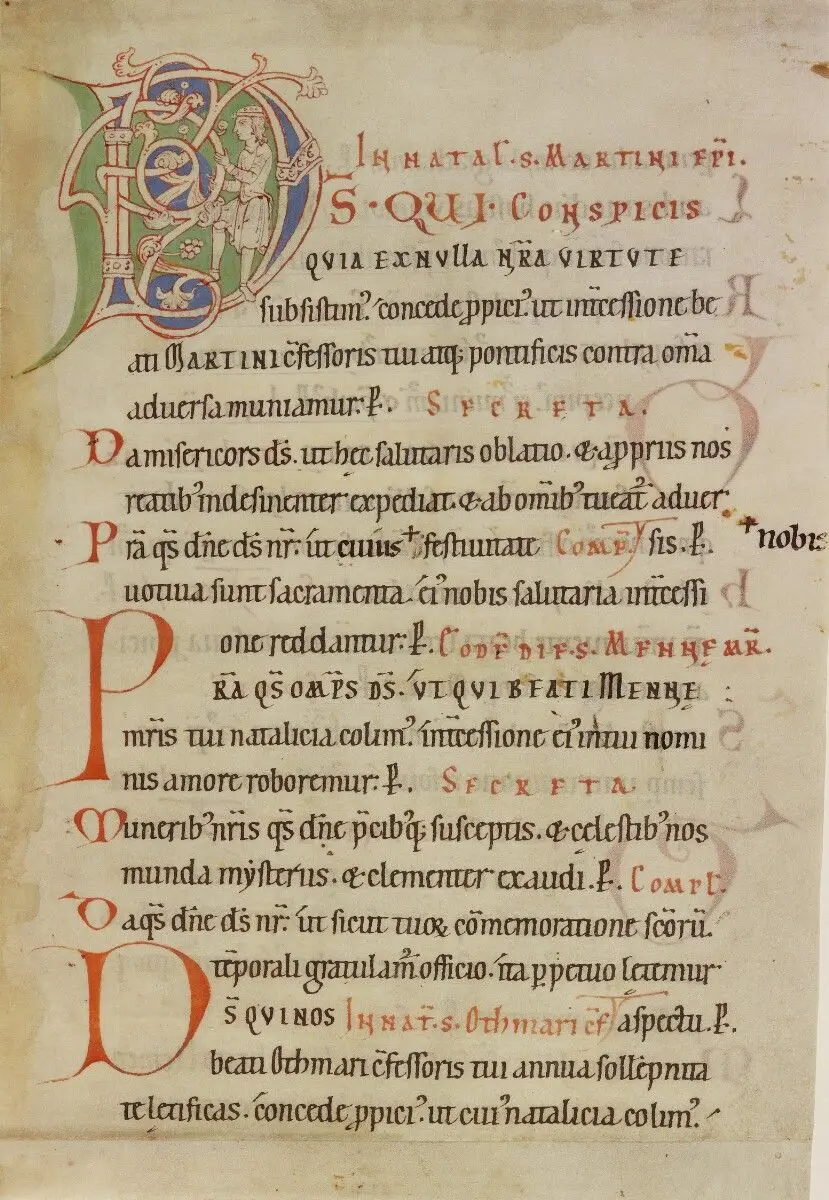 IN NATAL̅.S.MARTINI EP̅I.
D S·QUI·CONSPICIS
QVIA EX NVLLA NR̅A VIRTUTE
subsistim᷒. concede ꝓpici᷒. ut int̅cessione be
ati MARTINI c̅fessoris tui atq; pontificis contra om̅a
aduersa muniamur: P̲. SECRETA.
Da misericors ds̅. ut hec salutaris oblatio. & a ꝓpriis nos
reatib᷒ indesinenter expediat. & ab om̅ib᷒ tueat᷒ aduer
Pr̅a qs̅ dn̅e ds̅ nr̅. ut cuius + festiuitate COMP̅. sis. P̲. + nobis
uotiua sunt sacramenta. ei᷒ nobis salutaria int̅cessi
one reddantur: P̲. EODE̅ DIE.S.MENNE MR̅.
P R̅A QS̅ OMP̅S DS̅. UT QVI BEATI MENNE
mr̅is tui natalicia colim᷒. int̅cessione ei᷒ in tui nomi
nis amore roboremur: P̲. SECRETA.
Munerib᷒ nr̅is qs̅ dn̅e p̅cib᷒q; susceptis. & celestib᷒ nos
munda mysteriis. & clementer exaudi. P̲. COMPL̅.
Da qs̅ dn̅e ds̅ nr̅. ut sicut tuoꝝ co̅memoratione sc̅oru̅.
te̅porali gratulam᷒ officio. ita ꝑpetuo letemur
D S̅ QVI NOS IN NAT̅.S.Othmari c̅f aspectu. P̲.
beati Othmari c̅fessoris tui annua solle̅pnita
te letificas. concede ꝓpici᷒. ut cui᷒ natalicia colim᷒.